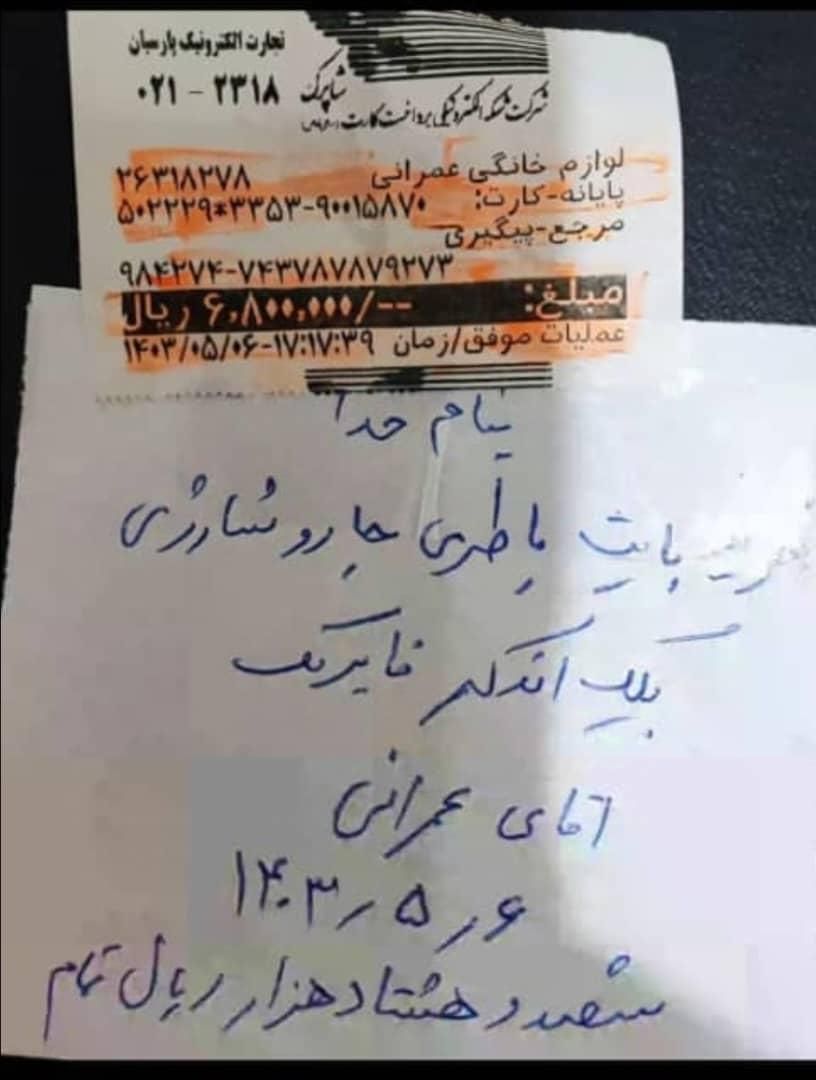 تجارت الکترونیک پارسیان
۰۲۱ - ۲۳۱۸
شاپرک
شرکت شبکه الکترونیکی پرداخت کارت
لوازم خانگی عمرانی ۲۶۳۱۸۲۷۸
پایانه-کارت: ۵۰۲۲۲۹*۳۳۵۳-۹۰۰۱۵۸۷۰
مرجع-پیگیری
۹۸۴۲۷۴-۷۴۳۷۸۷۸۷۹۲۷۳
مبلغ: ۶,۸۰۰,۰۰۰/-- ریال
عملیات موفق/زمان ۱۴۰۳/۰۵/۰۶-۱۷:۱۷:۳۹
بنام خدا
بابت باطری جارو شارژی
بلک اند کر فابریک
آقای عمرانی
۶ ر ۵ ر ۱۴۰۳
ششصد و هشتاد هزار ریال تمام